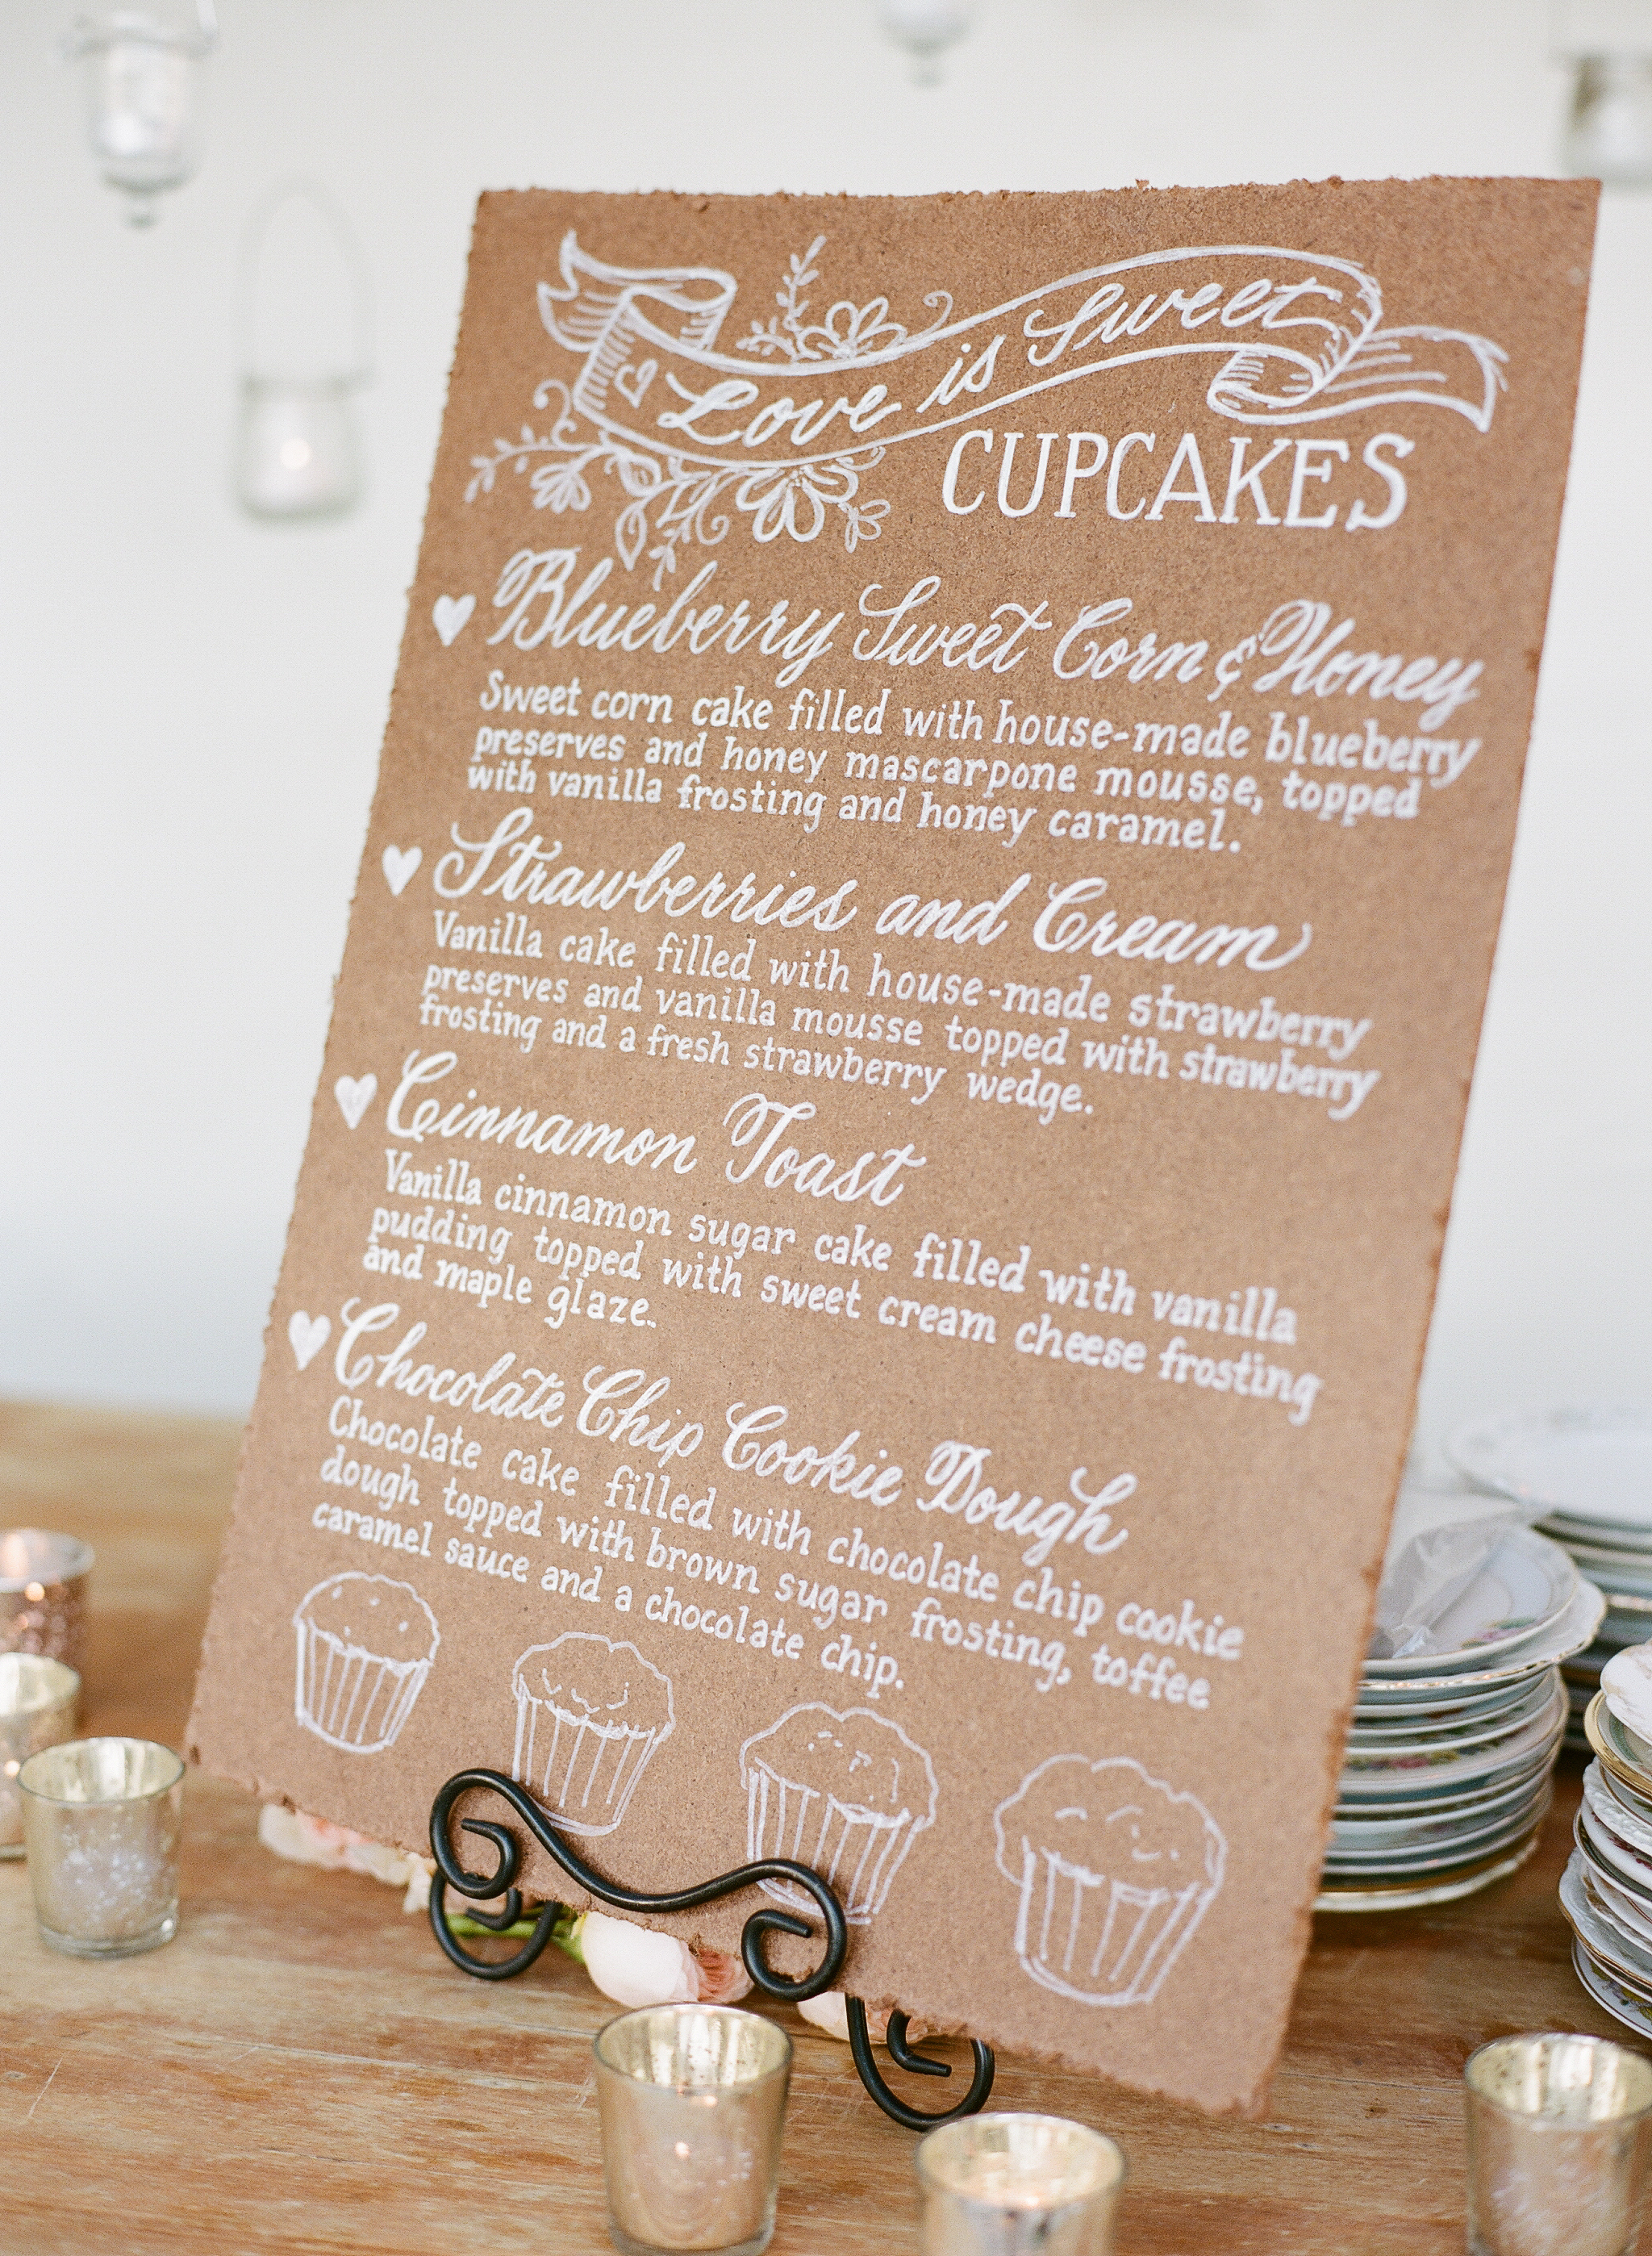 Love is Sweet
CUPCAKES
Blueberry Sweet Corn & Honey
Sweet corn cake filled with house-made blueberry
preserves and honey mascarpone mousse, topped
with vanilla frosting and honey caramel.
Strawberries and Cream
Vanilla cake filled with house-made strawberry
preserves and vanilla mousse topped with strawberry
frosting and a fresh strawberry wedge.
Cinnamon Toast
Vanilla cinnamon sugar cake filled with vanilla
pudding topped with sweet cream cheese frosting
and maple glaze.
Chocolate Chip Cookie Dough
Chocolate cake filled with chocolate chip cookie
dough topped with brown sugar frosting, toffee
caramel sauce and a chocolate chip.